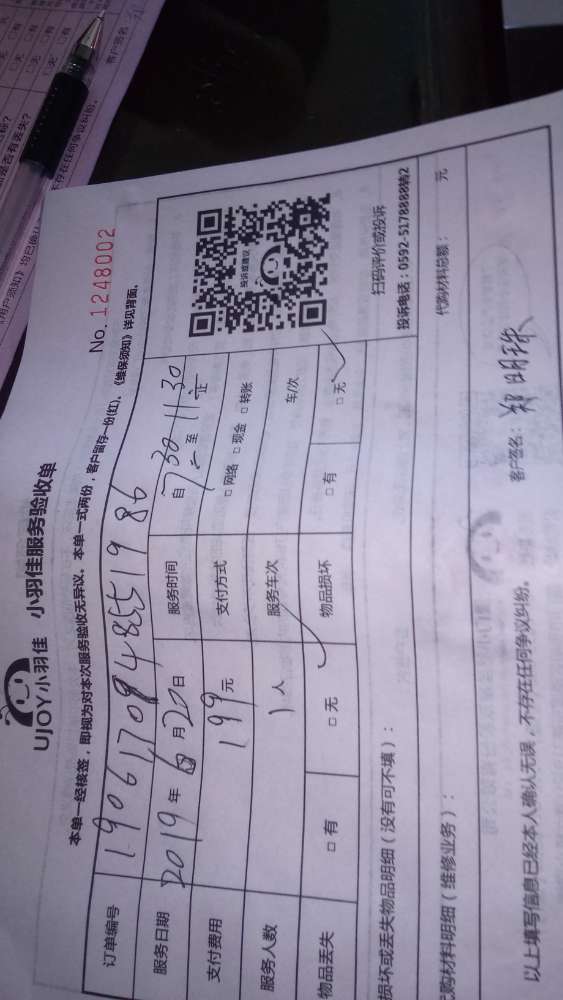 UJOY小羽佳 小羽佳服务验收单
No. 1248002
本单一经核签，即视为对本次服务验收无异议。本单一式两份，客户留存一份(红)，《维保须知》详见背面。
订单编号
服务日期 2019年6月20日 服务时间 自730至11:30止
支付费用 199元 支付方式 □网络 □现金 □转账
服务人数 1人 服务车次 车/次
物品丢失 □有 □无 物品损坏 □有 □无
投诉或建议
扫码评价或投诉
投诉电话：0592-5178888转2
损坏或丢失物品明细（没有可不填）：
购材料明细（维修业务）： 代购材料总额： 元
以上填写信息已经本人确认无误，不存在任何争议纠纷。 客户签名：郑明珠